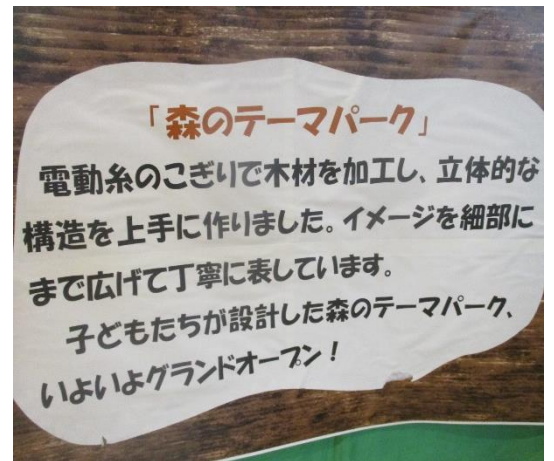 「森のテーマパーク」
電動糸のこぎりで木材を加工し、立体的な
構造を上手に作りました。イメージを細部に
まで広げて丁寧に表しています。
子どもたちが設計した森のテーマパーク、
いよいよグランドオープン！